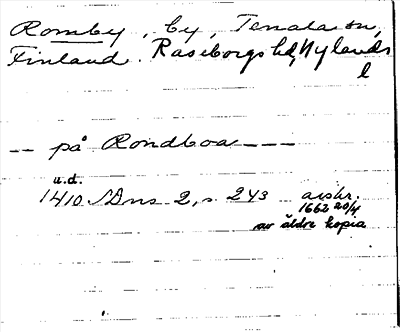 Romby, by, Tenala sn,
Finland. Raseborgs hd, Nylands
l
-- på Rondboa ---
u.d.
1410 SDns 2, s. 243 avskr.
1662 20/4
av äldre kopia